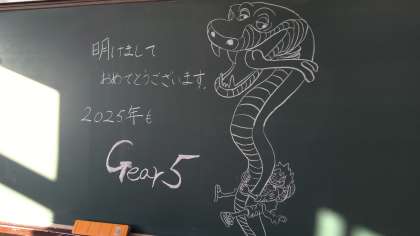 明けまして
おめでとうございます.
2025年も
Gear5